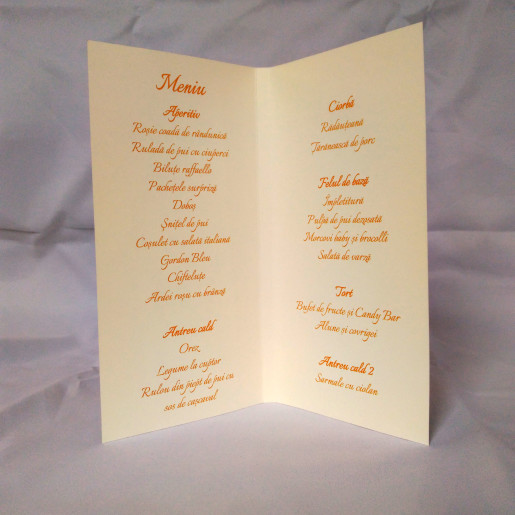 Meniu
Aperitiv
Roșie coadă de rândunică
Ruladă de pui cu ciuperci
Biluțe raffaello
Pachețele surpriză
Doboș
Șnițel de pui
Coșuleț cu salată italiana
Gordon Bleu
Chifteluțe
Ardei roșu cu brânză
Antreu cald
Orez
Legume la cuptor
Rulou din piept de pui cu
sos de cașcaval
Ciorbă
Rădăuțeană
Țărănească de porc
Felul de bază
Împletitură
Pulpă de pui dezosată
Morcovi baby și brocolli
Salată de varză
Tort
Bufet de fructe și Candy Bar
Alune și covrigei
Antreu cald 2
Sarmale cu ciolan